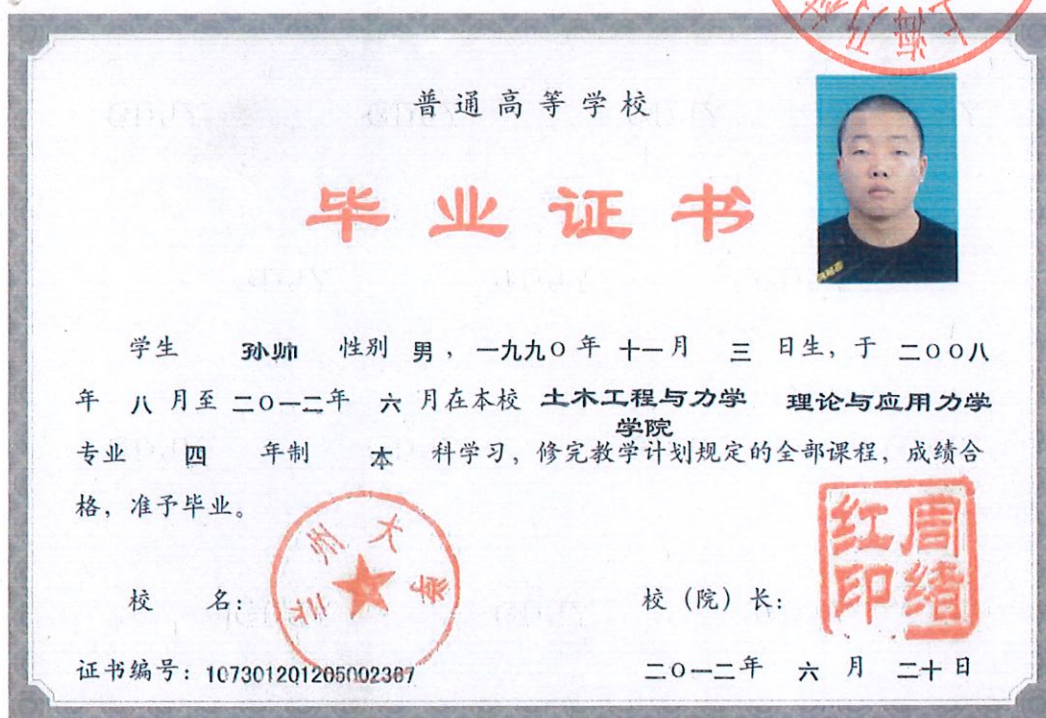 上海乃
普通高等学校
毕业证书
学生 孙帅 性别 男，一九九〇年 十一月 三 日生，于 二〇〇八
年 八 月至 二〇一二年 六 月在本校 土木工程与力学 理论与应用力学
学院
专业 四 年制 本 科学习，修完教学计划规定的全部课程，成绩合
格，准予毕业。
兰州大学
周绪红印
校 名：
校（院）长：
证书编号：107301201205002367
二〇一二年 六 月 二十日